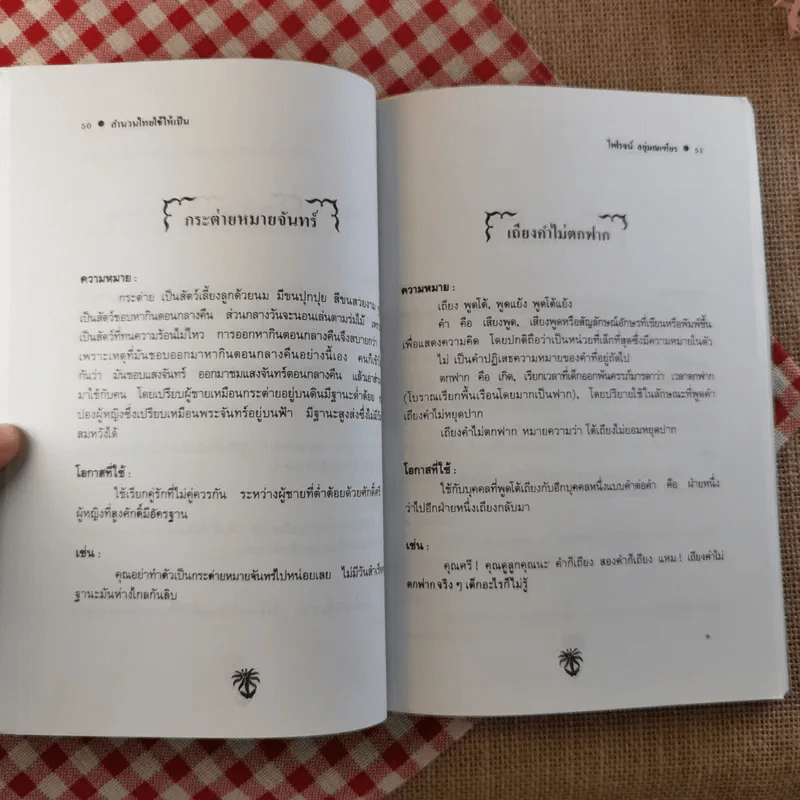 50 ● สำนวนไทยใช้ให้เป็น
กระต่ายหมายจันทร์
ความหมาย :
กระต่าย เป็นสัตว์เลี้ยงลูกด้วยนม มีขนปุกปุย สีขนสวยงาม
เป็นสัตว์ชอบหากินตอนกลางคืน ส่วนกลางวันจะนอนเล่นตามร่มไม้
เป็นสัตว์ที่ทนความร้อนไม่ไหว การออกหากินตอนกลางคืนจึงสบายกว่า
เพราะเหตุที่มันชอบออกมาหากินตอนกลางคืนอย่างนี้เอง
กันว่า มันชอบแสงจันทร์ ออกมาชมแสงจันทร์ตอนกลางคืน
มาใช้กับคน โดยเปรียบผู้ชายเหมือนกระต่ายอยู่บนดินมีฐานะต่ำต้อย
ปองผู้หญิงซึ่งเปรียบเหมือนพระจันทร์อยู่บนฟ้า มีฐานะสูงส่งซึ่งไม่
สมหวังได้
โอกาสที่ใช้ :
ใช้เรียกคู่รักที่ไม่คู่ควรกัน ระหว่างผู้ชายที่ต่ำต้อยด้วยศักดิ์ศรี
ผู้หญิงที่สูงศักดิ์มีอัครฐาน
เช่น :
คุณอย่าทำตัวเป็นกระต่ายหมายจันทร์ไปหน่อยเลย ไม่มีวันสำเร็จ
ฐานะมันห่างไกลกันลิบ
ไพโรจน์ อยู่มณเฑียร ● 51
เถียงคำไม่ตกฟาก
ความหมาย :
เถียง พูดโต้, พูดแย้ง พูดโต้แย้ง
คำ คือ เสียงพูด, เสียงพูดหรือสัญลักษณ์อักษรที่เขียนหรือพิมพ์ขึ้น
เพื่อแสดงความคิด โดยปกติถือว่าเป็นหน่วยที่เล็กที่สุดซึ่งมีความหมายในตัว
ไม่ เป็นคำปฏิเสธความหมายของคำที่อยู่ถัดไป
ตกฟาก คือ เกิด, เรียกเวลาที่เด็กออกพ้นครรภ์มารดาว่า เวลาตกฟาก
(โบราณเรียกพื้นเรือนโดยมากเป็นฟาก), โดยปริยายใช้ในลักษณะที่พูดคำ
เถียงคำไม่หยุดปาก
เถียงคำไม่ตกฟาก หมายความว่า โต้เถียงไม่ยอมหยุดปาก
โอกาสที่ใช้ :
ใช้กับบุคคลที่พูดโต้เถียงกับอีกบุคคลหนึ่งแบบคำต่อคำ คือ ฝ่ายหนึ่ง
ว่าไปอีกฝ่ายหนึ่งเถียงกลับมา
เช่น :
คุณศรี! คุณดูลูกคุณนะ คำก็เถียง สองคำก็เถียง แหม! เถียงคำไม่
ตกฟากจริง ๆ เด็กอะไรก็ไม่รู้